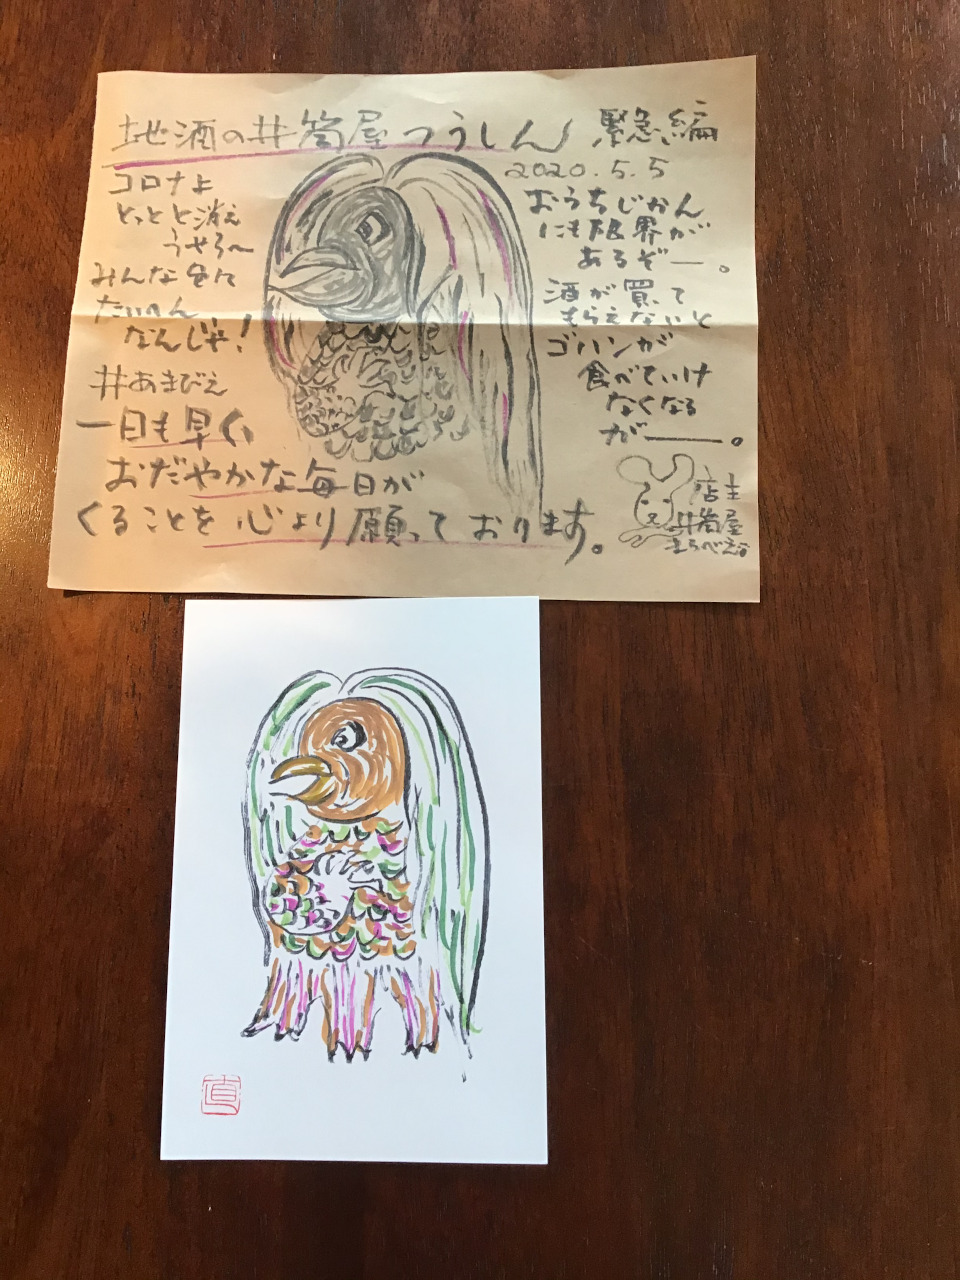 地酒の井筒屋つうしん 緊急編
2020.5.5
コロナよ
とっとと消え
うせろ〜
みんな全て
たいへん
なんじゃ!
#あまびえ
おうちじかん
にも限界が
あるぞー。
酒が買って
もらえないと
ゴハンが
食べていけ
なくなる
がー。
一日も早く、
おだやかな毎日が
くることを心より願っております。
店主
井筒屋
直